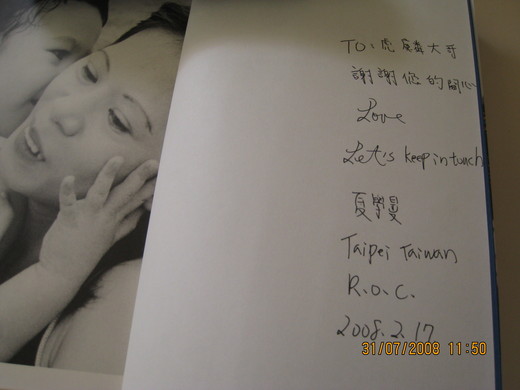 TO: 虎麟大哥
謝謝您的關心
Love
Let's keep in tunch
夏學曼
Taipei Taiwan
R.O.C.
2008.2.17
31/07/2008 11:50